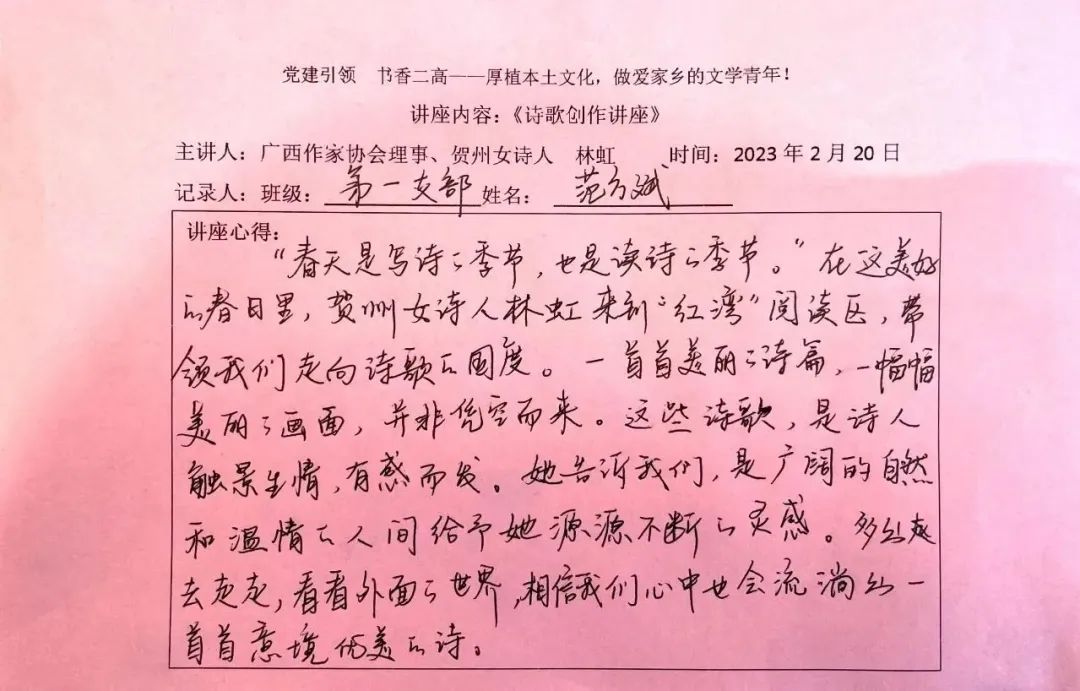 党建引领　书香二高——厚植本土文化，做爱家乡的文学青年！
讲座内容：《诗歌创作讲座》
主讲人：广西作家协会理事、贺州女诗人　林虹　　时间：2023年2月20日
记录人：班级：第一支部 姓名：范方斌
讲座心得：
“春天是写诗的季节，也是读诗的季节。”在这美好
的春日里，贺州女诗人林虹来到“红湾”阅读区，带
领我们走向诗歌的国度。一首首美丽的诗篇，一幅幅
美丽的画面，并非凭空而来。这些诗歌，是诗人
触景生情，有感而发。她告诉我们，是广阔的自然
和温情的人间给予她源源不断的灵感。多出
去走走，看看外面的世界，相信我们心中也会流淌出一
首首意境优美的诗。